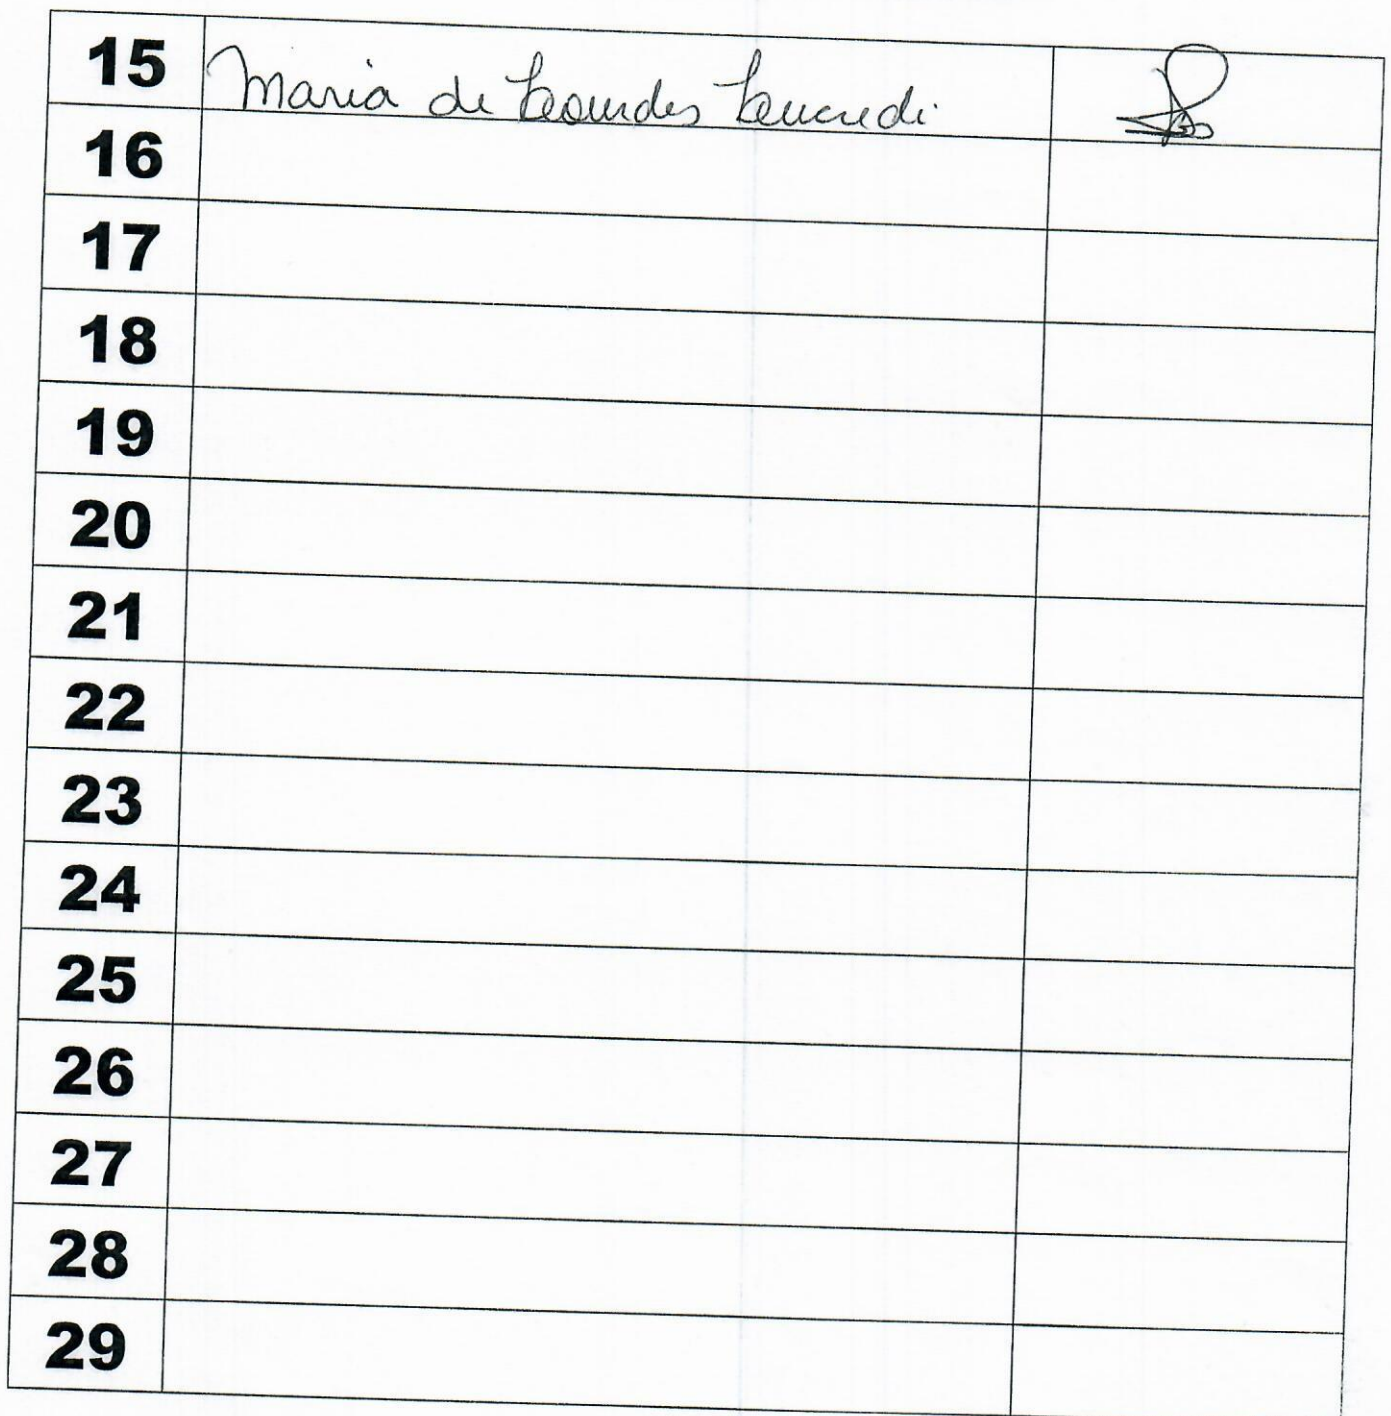 15 Maria de Lourdes Lucredi
16
17
18
19
20
21
22
23
24
25
26
27
28
29